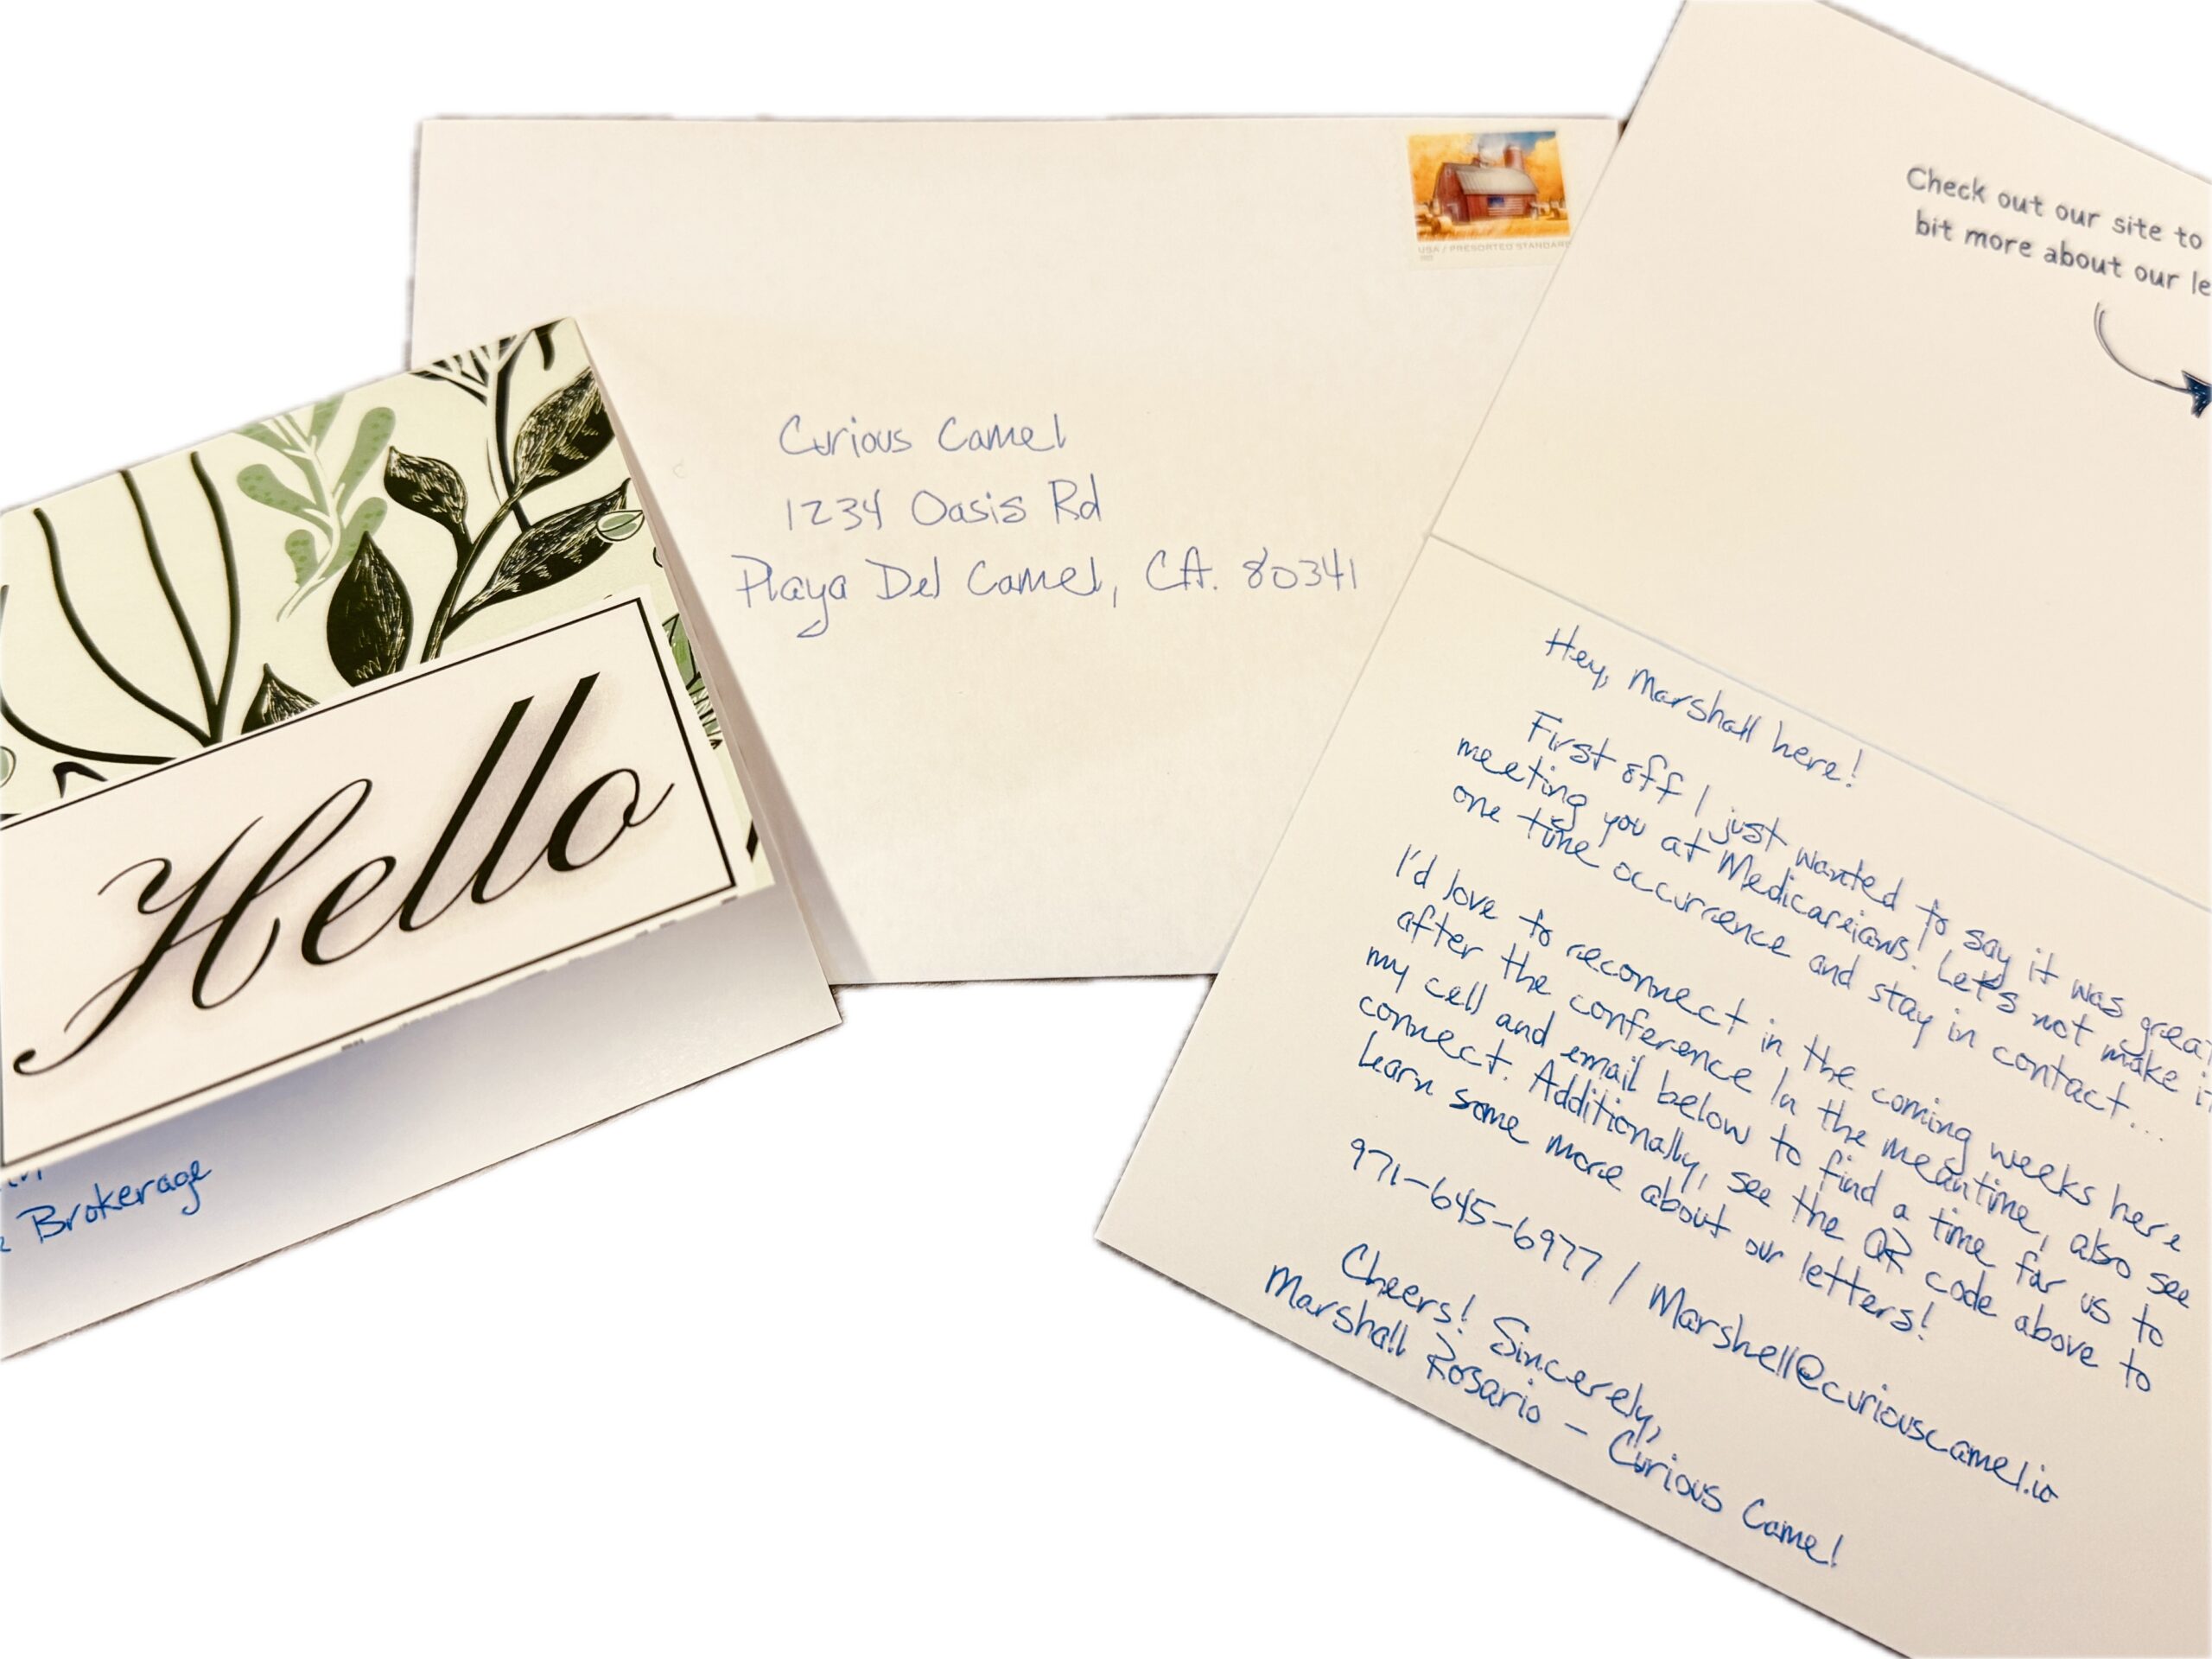 Hello
Brokerage
Curious Camel
1234 Oasis Rd
Playa Del Camel, CA. 80341
USA / PRESORTED STANDARD
Check out our site to
bit more about our le
Hey, Marshall here!
First off I just wanted to say it was great
meeting you at Medicareians! Let's not make it
one time occurrence and stay in contact...
I'd love to reconnect in the coming weeks here
after the conference In the meantime, also see
my cell and email below to find a time for us to
connect. Additionally, see the QR code above to
learn some more about our letters!
971-645-6977 / Marshell@curiouscamel.io
Cheers! Sincerely,
Marshall Rosario - Curious Camel